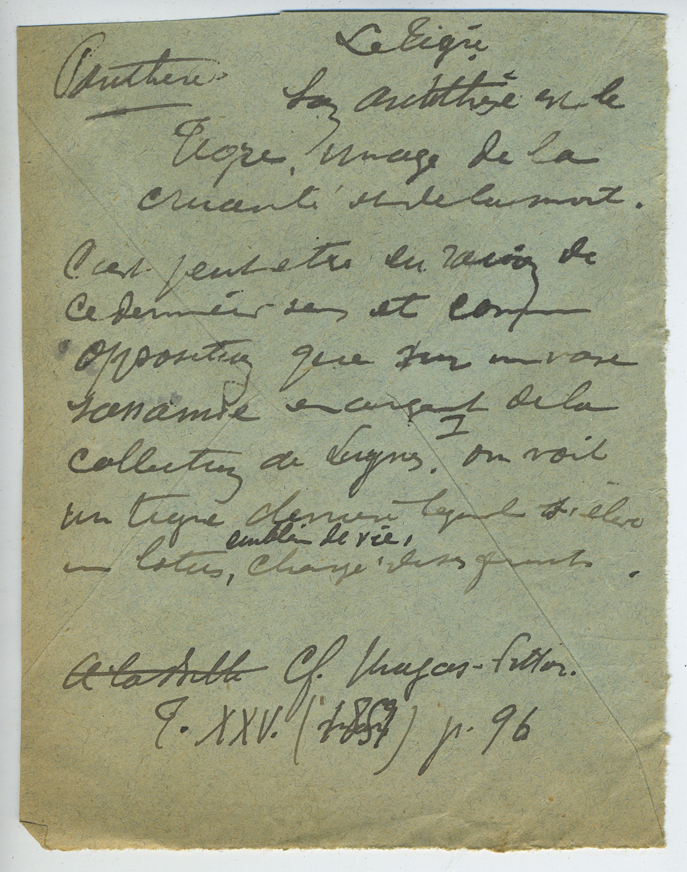 Le Tigre
Panthère
Son antithèse est le
Tigre, image de la
cruauté et de la mort.
C'est peut etre en raison de
ce dernier sens et comme
opposition que sur un vase
sassanide en argent de la
collection de Luynes, on voit
un tigre derrière lequel s'élève
emblème de vie,
un lotus, chargé de ses fruits.
Cf. Magas-Pittor.
T. XXV. (1857) p. 96